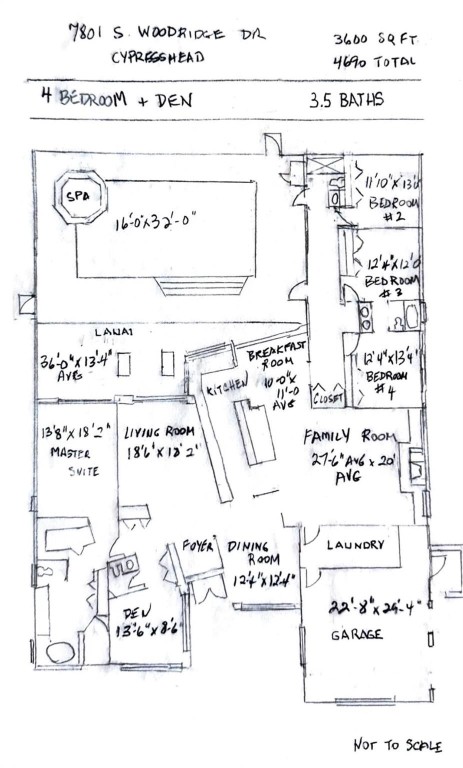 7801 S. WOODRIDGE DR
CYPRESSHEAD
3600 SQ FT
4690 TOTAL
4 BEDROOM + DEN
3.5 BATHS
SPA
16'-0" X 32'-0"
11'10" X 13'0"
BEDROOM
#2
12'4" X 12'0
BEDROOM
#3
LANAI
36'-0" X 13'-4"
AVG
BREAKFAST
ROOM
10'-0" X
11'-0
AVG
KITCHEN
12'4" X 13'4"
BEDROOM
#4
CLOSET
13'8" X 18'2"
MASTER
SUITE
LIVING ROOM
18'6" X 18'2"
FAMILY ROOM
27'-6" AVG X 20'
AVG
FOYER
DINING
ROOM
12'4" X 12'4"
LAUNDRY
DEN
13'-6" X 8'6"
22'-8" X 25'-4"
GARAGE
NOT TO SCALE